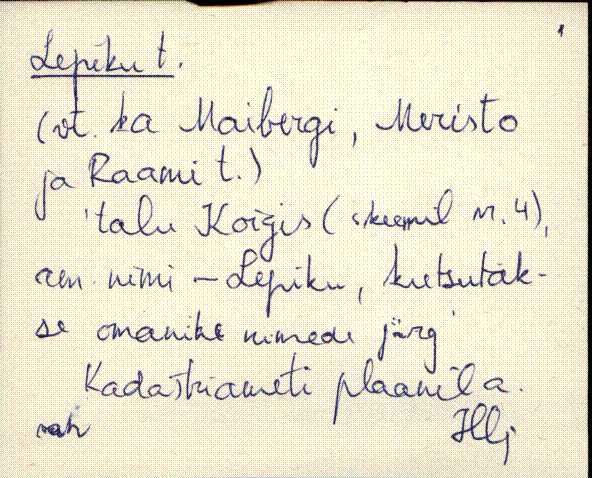 Lepiku t.
(vt. ka Maibergi, Meristo
ja Raami t.)
'talu Koigis (skeemil nr. 4),
nimi – Lepiku, kutsutak-
se omanike nimede järg'
Kadastriameti plaanil a.